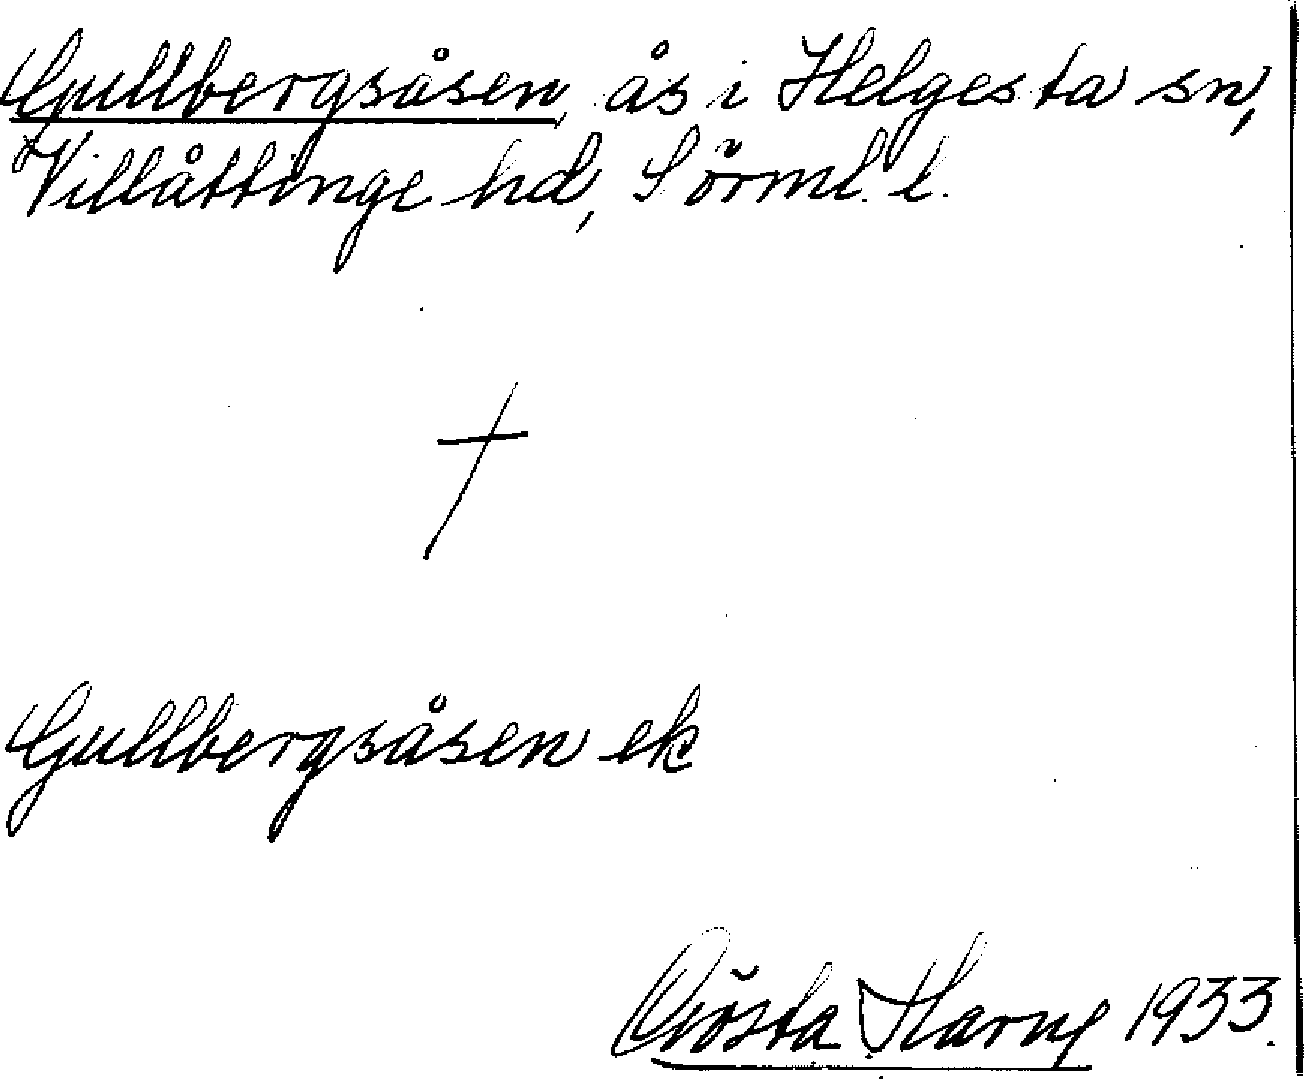 Gullbergsåsen, ås i Helgesta sn,
Villåttinge hd, Sörml. l.
†
Gullbergsåsen ek
Gösta Harng 1933.